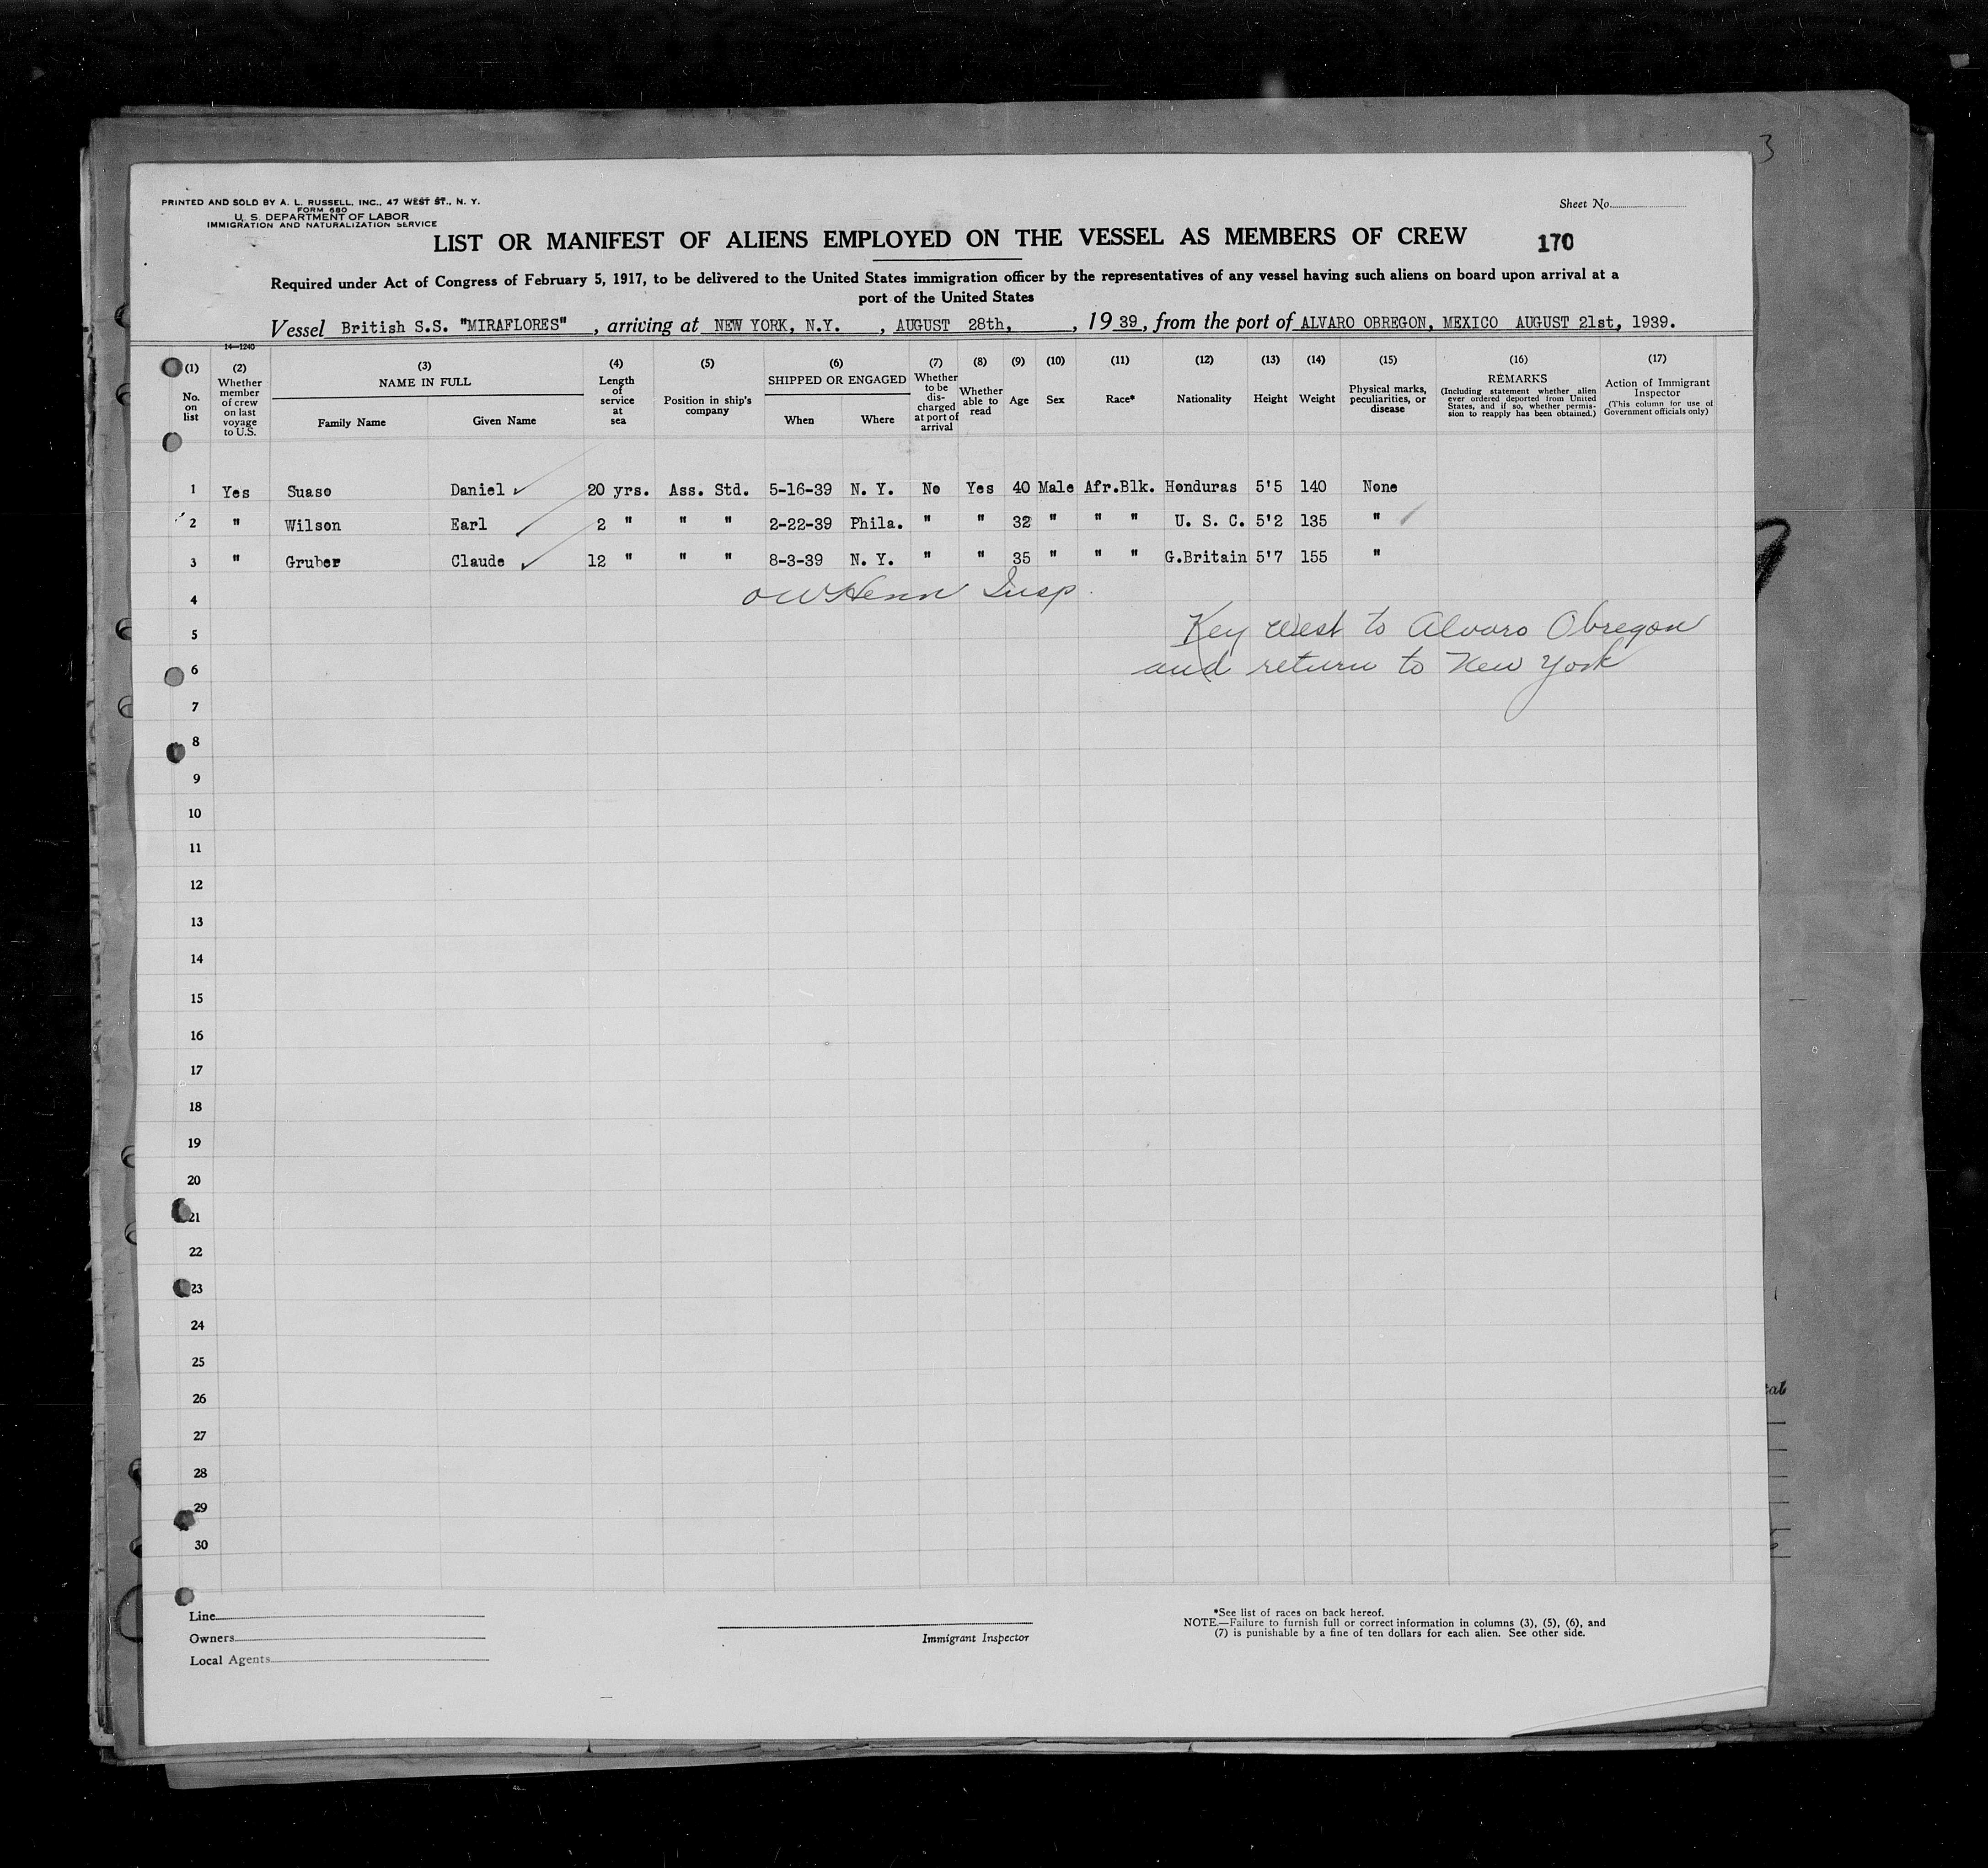 3
PRINTED AND SOLD BY A. L. RUSSELL, INC., 47 WEST ST., N. Y.
FORM 680
U. S. DEPARTMENT OF LABOR
IMMIGRATION AND NATURALIZATION SERVICE
Sheet No.
LIST OR MANIFEST OF ALIENS EMPLOYED ON THE VESSEL AS MEMBERS OF CREW 170
Required under Act of Congress of February 5, 1917, to be delivered to the United States immigration officer by the representatives of any vessel having such aliens on board upon arrival at a
port of the United States
Vessel British S.S. "MIRAFLORES", arriving at NEW YORK, N.Y., AUGUST 28th, , 1939, from the port of ALVARO OBREGON, MEXICO AUGUST 21st, 1939.
14—1240
(1) No. on list
(2) Whether member of crew on last voyage to U.S.
(3) NAME IN FULL
Family Name Given Name
(4) Length of service at sea
(5) Position in ship's company
(6) SHIPPED OR ENGAGED
When Where
(7) Whether to be discharged at port of arrival
(8) Whether able to read
(9) Age
(10) Sex
(11) Race*
(12) Nationality
(13) Height
(14) Weight
(15) Physical marks, peculiarities, or disease
(16) REMARKS
(Including statement whether alien ever ordered deported from United States, and if so, whether permission to reapply has been obtained.)
(17) Action of Immigrant Inspector
(This column for use of Government officials only)
1 Yes Suaso Daniel 20 yrs. Ass. Std. 5-16-39 N. Y. No Yes 40 Male Afr.Blk. Honduras 5'5 140 None
2 " Wilson Earl 2 " " " 2-22-39 Phila. " " 32 " " " U. S. C. 5'2 135 "
3 " Gruber Claude 12 " " " 8-3-39 N. Y. " " 35 " " " G.Britain 5'7 155 "
4 Insp.
5 Key West to Alvaro Obregon
6 and return to New York
7
8
9
10
11
12
13
14
15
16
17
18
19
20
21
22
23
24
25
26
27
28
29
30
Line
Owners
Local Agents
Immigrant Inspector
*See list of races on back hereof.
NOTE.—Failure to furnish full or correct information in columns (3), (5), (6), and
(7) is punishable by a fine of ten dollars for each alien. See other side.